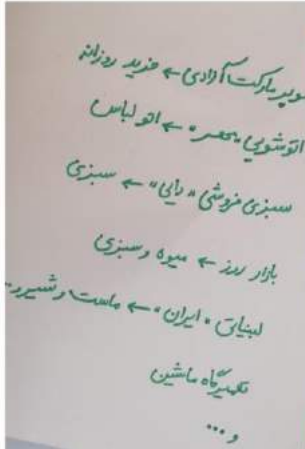 سوپر مارکت آزادی ← خرید روزانه
اتوشویی "عصر" ← اتو لباس
سبزی فروشی "دایی" ← سبزی
بازار روز ← میوه و سبزی
لبنیاتی "ایران" ← ماست و شیر و..
تعمیرگاه ماشین
و ...